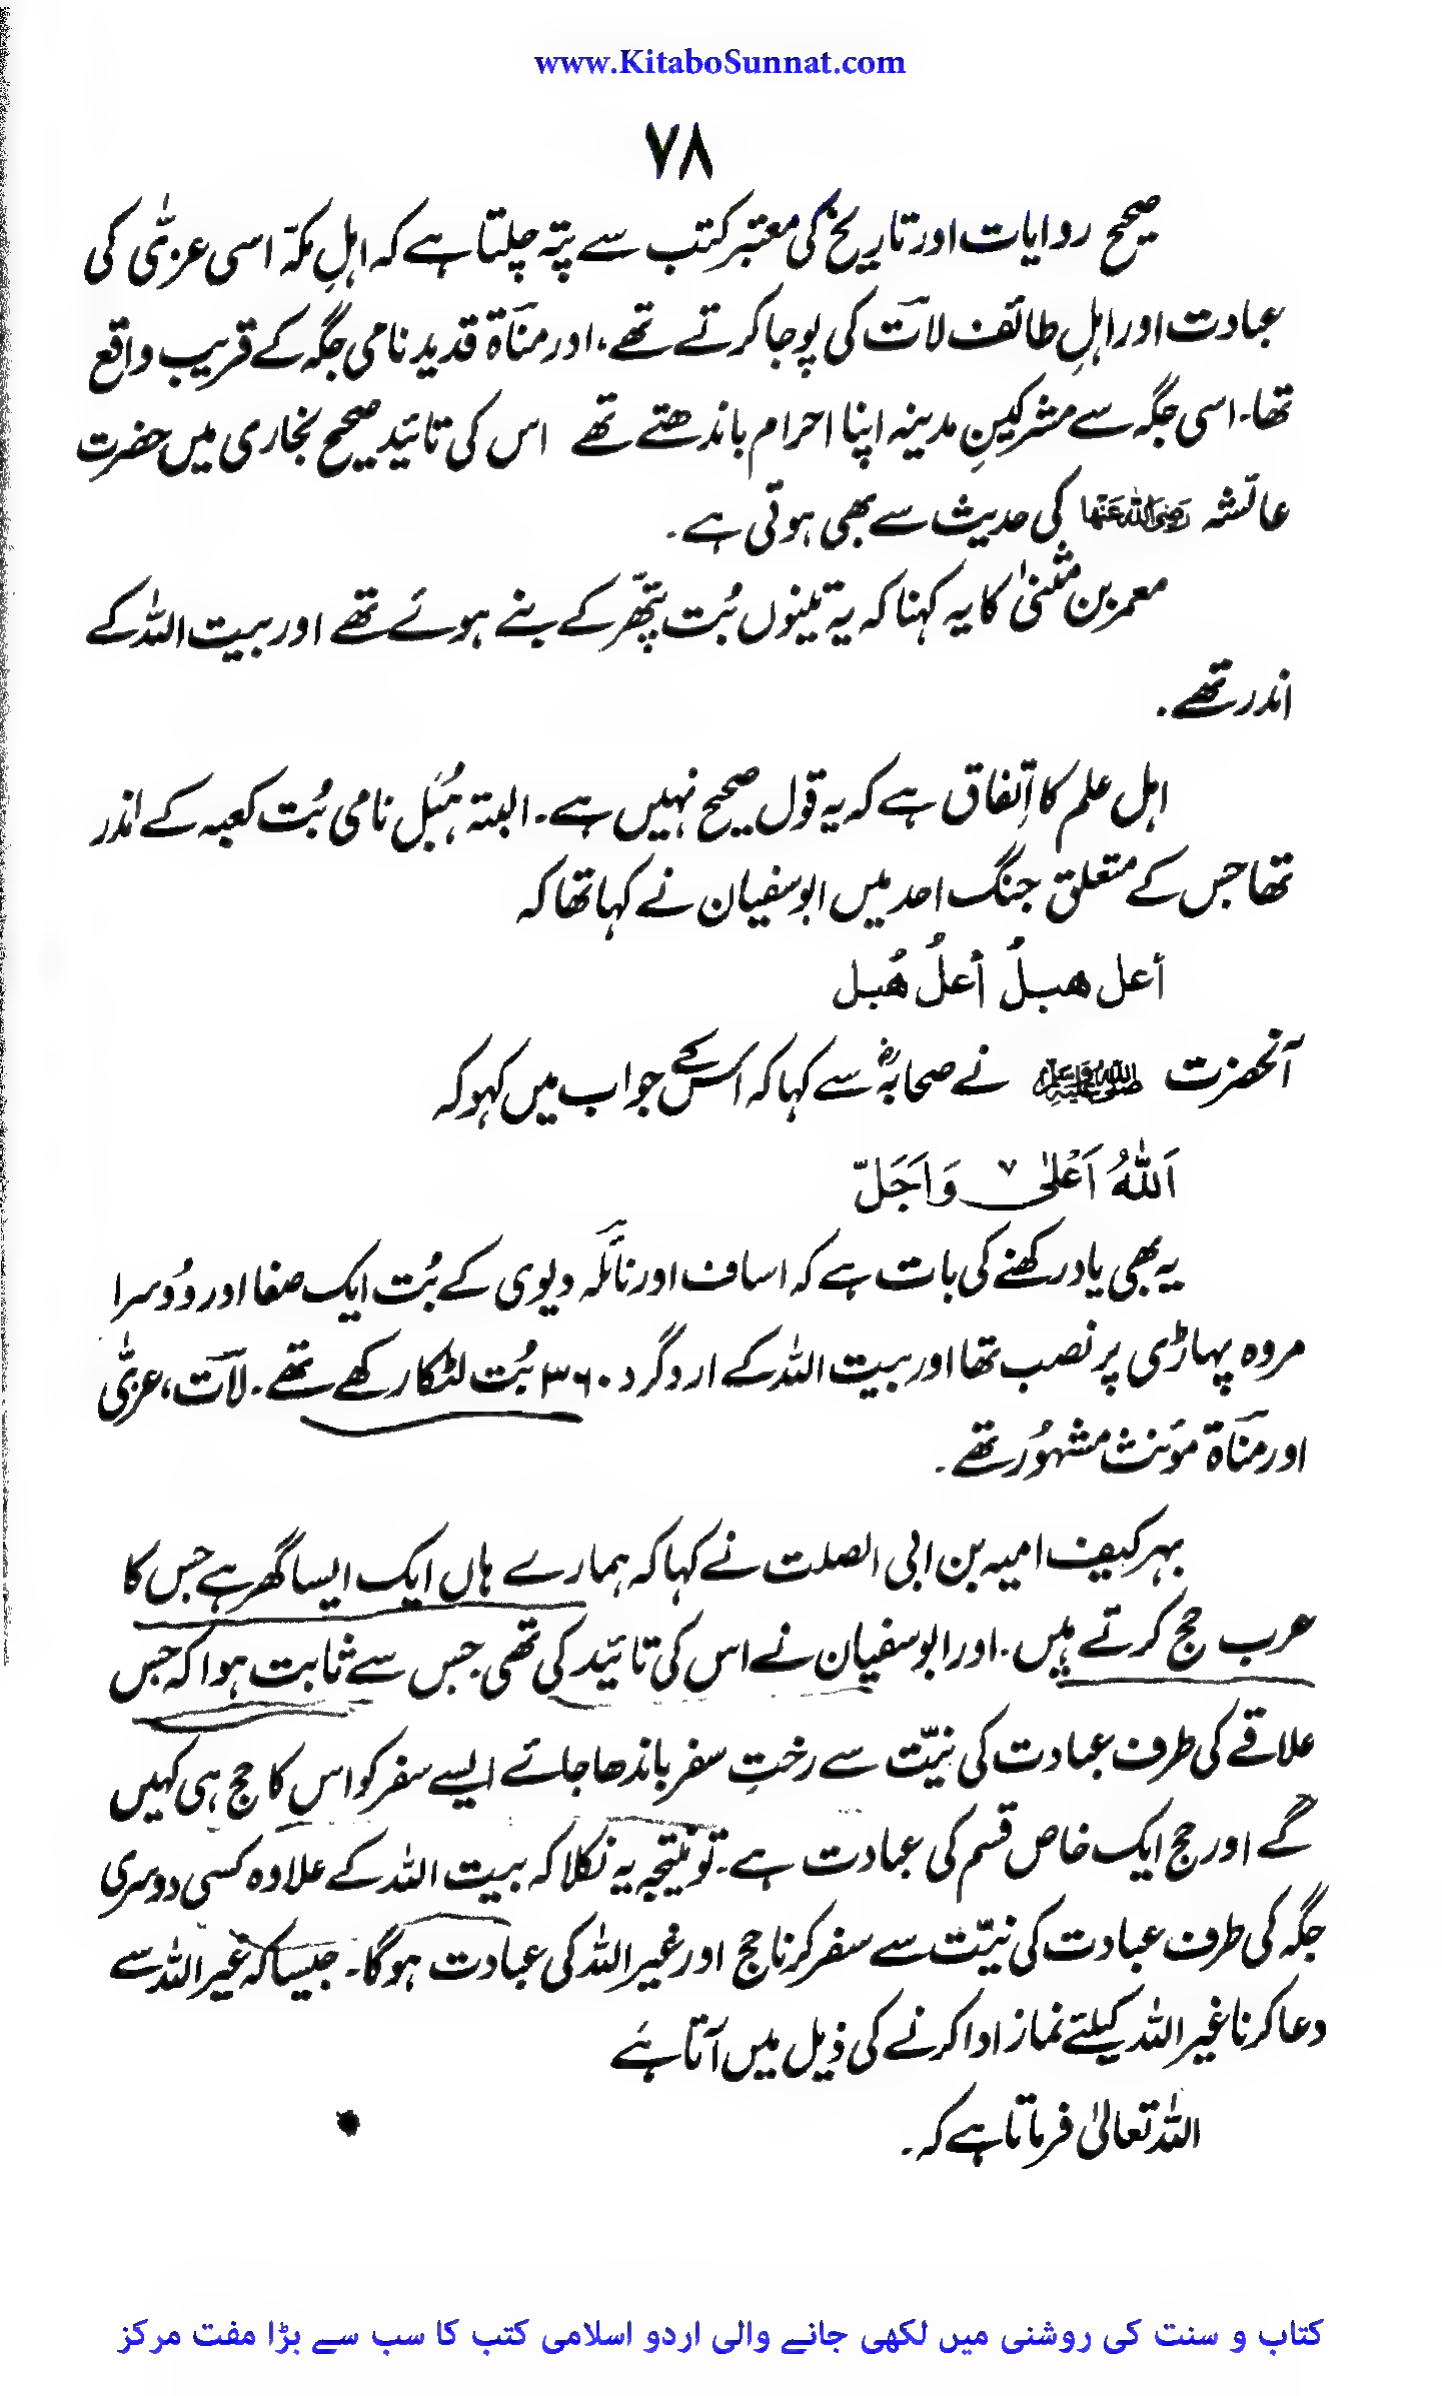 www.KitaboSunnat.com
۷۸
صحیح روایات اور تاریخ کی معتبر کتب سے پتہ چلتا ہے کہ اہلِ مکہّ اسی عزیّٰ کی
عبادت اور اہلِ طائف لات کی پوجا کرتے تھے، اور مناۃ قدید نامی جگہ کے قریب واقع
تھا۔ اسی جگہ سے مشرکینِ مدینہ اپنا احرام باندھتے تھے اس کی تائید صحیح بخاری میں حضرت
عائشہ رَضِیَ اللہُ عَنْہَا کی حدیث سے بھی ہوتی ہے۔
معمر بن مثنیٰ کا یہ کہنا کہ یہ تینوں بُت پتھّر کے بنے ہوئے تھے اور بیت اللہ کے
اندر تھے۔
اہل علم کا اِتفاق ہے کہ یہ قول صحیح نہیں ہے۔ البتہ ہُبَل نامی بُت کعبہ کے اندر
تھا جس کے متعلق جنگ احد میں ابوسفیان نے کہا تھا کہ
أعل هبلُ أُعلُ هُبل
آنحضرت صلی اللہ علیہ وسلم نے صحابہؓ سے کہا کہ اسکے جواب میں کہو کہ
اَللّٰہُ اَعْلٰی وَاَجَلّ
یہ بھی یاد رکھنے کی بات ہے کہ اساف اور نائلہ دیوی کے بُت ایک صفا اور دُوسرا
مروہ پہاڑی پر نصب تھا اور بیت اللہ کے اردگرد ۳۶۰ بُت لٹکا رکھے تھے۔ لات، عزیّٰ
اور مناۃ مؤنث مشہوُر تھے۔
بہرکیف امیہ بن ابی الصلت نے کہا کہ ہمارے ہاں ایک ایسا گھر ہے جس کا
عرب حج کرتے ہیں۔ اور ابوسفیان نے اس کی تائید کی تھی جس سے ثابت ہوا کہ جس
علاقے کی طرف عبادت کی نیّت سے رختِ سفر باندھا جائے ایسے سفر کو اس کا حج ہی کہیں
گے اور حج ایک خاص قسم کی عبادت ہے۔ تو نتیجہ یہ نکلا کہ بیت اللہ کے علاوہ کسی دوسری
جگہ کی طرف عبادت کی نیّت سے سفر کرنا حج اور غیر اللہ کی عبادت ہوگا۔ جیسا کہ غیر اللہ سے
دعا کرنا غیر اللہ کیلئے نماز ادا کرنے کی ذیل میں آتا ہَے
اللہ تعالیٰ فرماتا ہے کہ۔
کتاب و سنت کی روشنی میں لکھی جانے والی اردو اسلامی کتب کا سب سے بڑا مفت مرکز